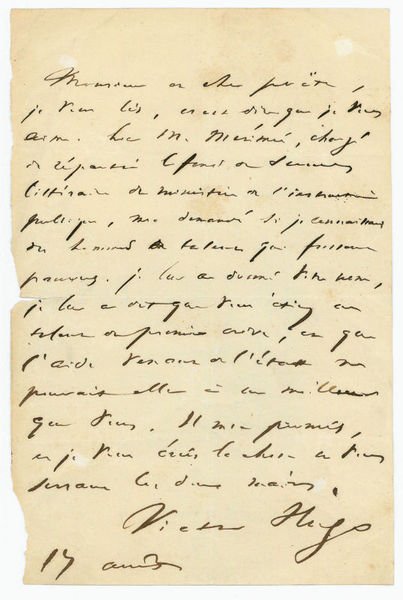 Monsieur et cher poëte,
je vous lis, c'est dire que je vous
aime. Hier M. Mérimée, chargé
de répartir le fond de secours
littéraire du ministère de l'instruction
publique, m'a demandé si je connaissais
des hommes de talent qui fussent
pauvres. je lui ai donné votre nom,
je lui ai dit que vous étiez un
talent du premier ordre, et que
l'aide de l'état ne
pouvait aller à un meilleur
que vous. Il m'a promis,
et je vous écris la chose en vous
serrant les deux mains.
Victor Hugo
17 août